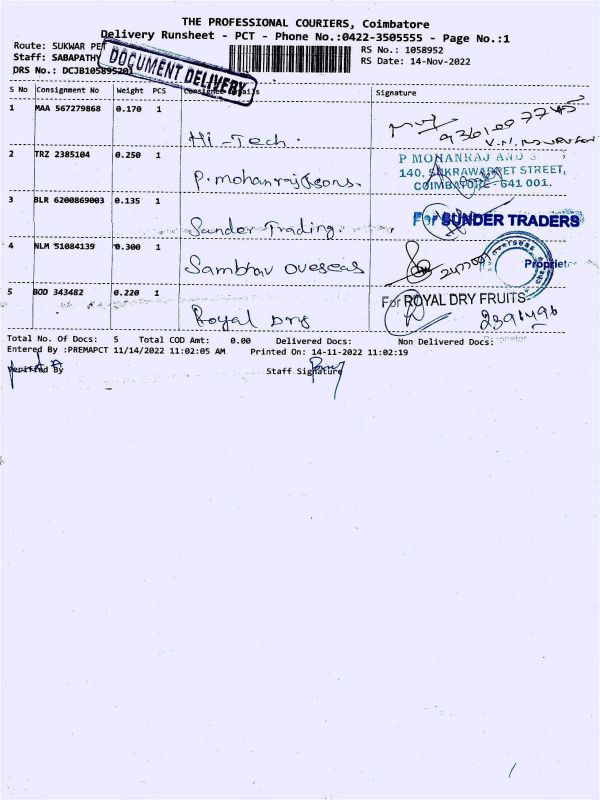 THE PROFESSIONAL COURIERS, Coimbatore
Delivery Runsheet - PCT - Phone No.:0422-3505555 - Page No.:1
Route: SUKWAR PET
RS No.: 1058952
Staff: SABAPATHY
RS Date: 14-Nov-2022
DRS No.: DCJB105895201
DOCUMENT DELIVERY
S No Consignment No Weight PCS Consignee Details Signature
1 MAA 567279868 0.170 1 Hi-Tech.
2 TRZ 2385104 0.250 1 P. mohanraj & sons. P MOHANRAJ AND
140, SUKRAWARPET STREET,
COIMBATORE - 641 001.
3 BLR 6200869003 0.135 1 Sunder Trading. For SUNDER TRADERS
4 NLM 51084139 0.300 1 Sambhav overseas Proprietor
5 BOD 343482 0.220 1 Royal Dry For ROYAL DRY FRUITS
Proprietor
Total No. Of Docs: 5 Total COD Amt: 0.00 Delivered Docs: Non Delivered Docs:
Entered By :PREMAPCT 11/14/2022 11:02:05 AM Printed On: 14-11-2022 11:02:19
Verified By Staff Signature